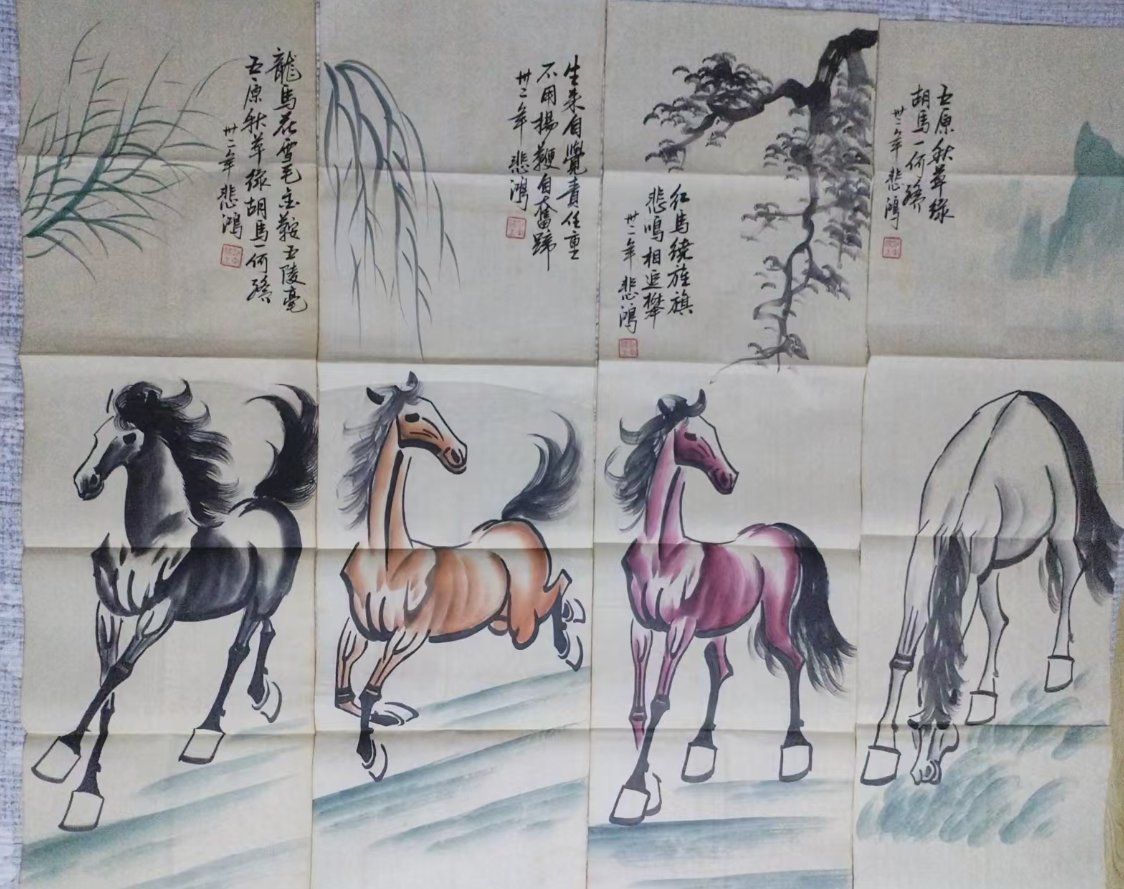 龍馬花雪毛金鞍五陵豪
五原秋草綠胡馬一何驕
卅二年 悲鴻
生来自覺責任重
不用揚鞭自奮蹄
卅二年 悲鴻
紅馬繞旌旗
悲鳴相追攀
卅二年 悲鴻
五原秋草綠
胡馬一何驕
卅二年 悲鴻